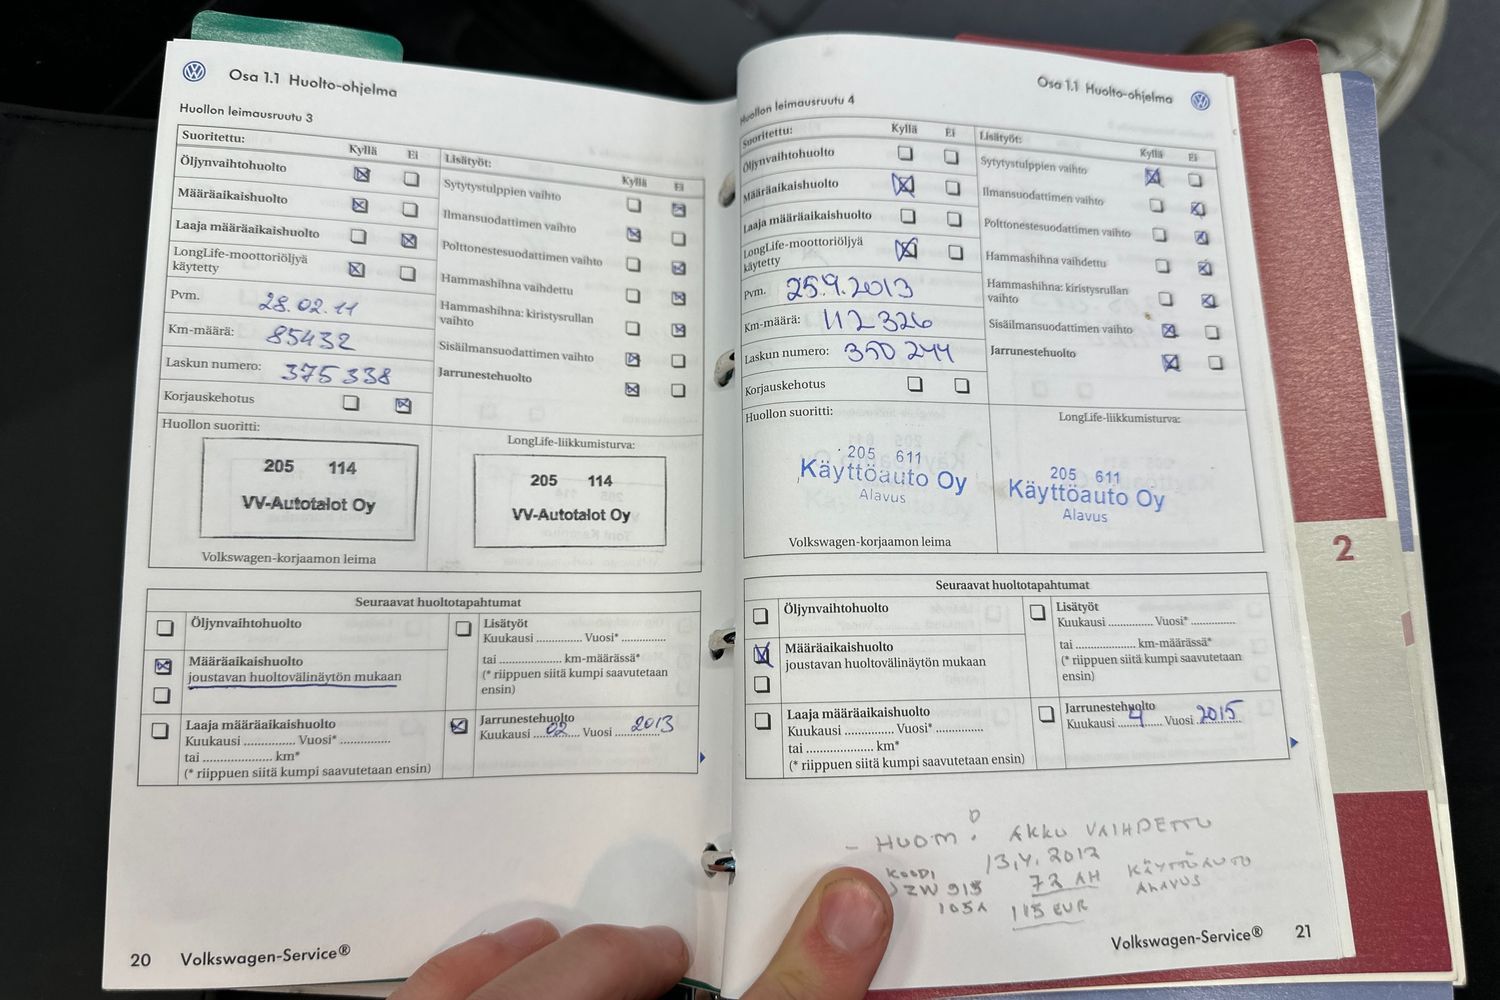 Osa 1.1 Huolto-ohjelma
Huollon leimausruutu 3
Suoritettu:
Kyllä Ei
Öljynvaihtohuolto
Määräaikaishuolto
Laaja määräaikaishuolto
LongLife-moottoriöljyä
käytetty
Pvm. 28.02.11
Km-määrä: 85432
Laskun numero: 375338
Korjauskehotus
Lisätyöt:
Kyllä Ei
Sytytystulppien vaihto
Ilmansuodattimen vaihto
Polttonestesuodattimen vaihto
Hammashihna vaihdettu
Hammashihna: kiristysrullan
vaihto
Sisäilmansuodattimen vaihto
Jarrunestehuolto
Huollon suoritti:
205 114
VV-Autotalot Oy
Volkswagen-korjaamon leima
LongLife-liikkumisturva:
205 114
VV-Autotalot Oy
Seuraavat huoltotapahtumat
Öljynvaihtohuolto
Määräaikaishuolto
joustavan huoltovälinäytön mukaan
Laaja määräaikaishuolto
Kuukausi .............. Vuosi* ..............
tai .................... km*
(* riippuen siitä kumpi saavutetaan ensin)
Lisätyöt
Kuukausi ............. Vuosi* .............
tai .................... km-määrässä*
(* riippuen siitä kumpi saavutetaan
ensin)
Jarrunestehuolto
Kuukausi 02 Vuosi 2013
20 Volkswagen-Service®
Osa 1.1 Huolto-ohjelma
Huollon leimausruutu 4
Suoritettu:
Kyllä Ei
Öljynvaihtohuolto
Määräaikaishuolto
Laaja määräaikaishuolto
LongLife-moottoriöljyä
käytetty
Pvm. 25.9.2013
Km-määrä: 112326
Laskun numero: 350244
Korjauskehotus
Lisätyöt:
Kyllä Ei
Sytytystulppien vaihto
Ilmansuodattimen vaihto
Polttonestesuodattimen vaihto
Hammashihna vaihdettu
Hammashihna: kiristysrullan
vaihto
Sisäilmansuodattimen vaihto
Jarrunestehuolto
Huollon suoritti:
205 611
Käyttöauto Oy
Alavus
Volkswagen-korjaamon leima
LongLife-liikkumisturva:
205 611
Käyttöauto Oy
Alavus
Seuraavat huoltotapahtumat
Öljynvaihtohuolto
Määräaikaishuolto
joustavan huoltovälinäytön mukaan
Laaja määräaikaishuolto
Kuukausi .............. Vuosi* ..............
tai .................... km*
(* riippuen siitä kumpi saavutetaan ensin)
Lisätyöt
Kuukausi ............. Vuosi* .............
tai .................... km-määrässä*
(* riippuen siitä kumpi saavutetaan
ensin)
Jarrunestehuolto
Kuukausi 4 Vuosi 2015
- HUOM! AKKU VAIHDETTU
13.4.2012
KOODI 72 AH KÄYTTÖAUTO
JZW 915 ALAVUS
105A 115 EUR
Volkswagen-Service® 21
2